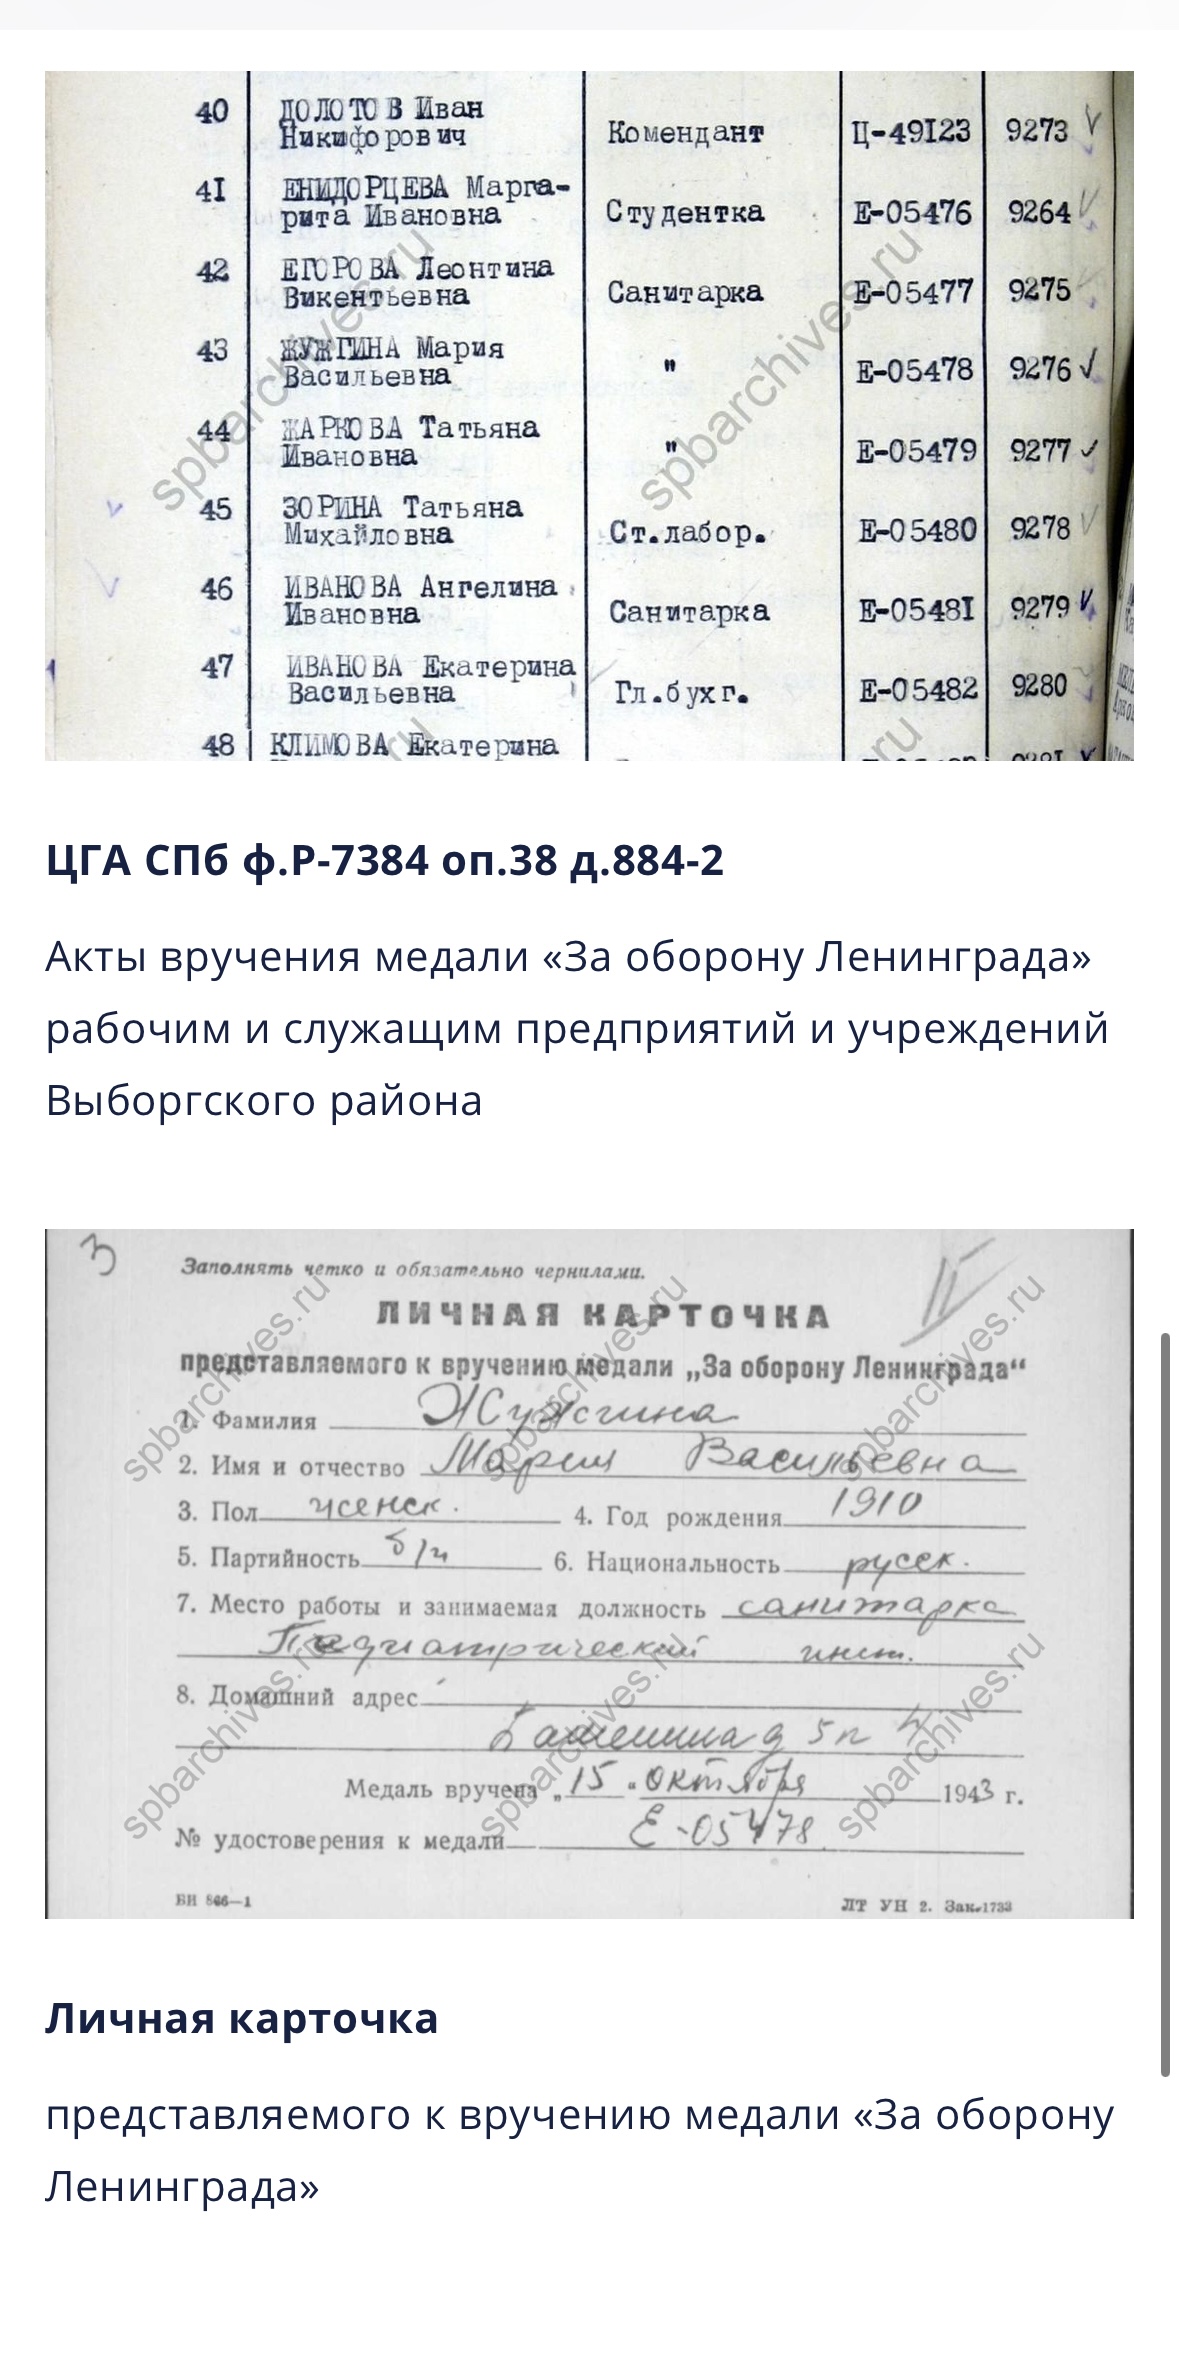 40 ДОЛОТОВ Иван
Никифорович Комендант Ц-49I23 9273
4I ЕНИДОРЦЕВА Марга-
рита Ивановна Студентка Е-05476 9264
42 ЕГОРОВА Леонтина
Викентьевна Санитарка Е-05477 9275
43 ЖУЖГИНА Мария
Васильевна " Е-05478 9276
44 ЖАРКОВА Татьяна
Ивановна " Е-05479 9277
45 ЗОРИНА Татьяна
Михайловна Ст.лабор. Е-05480 9278
46 ИВАНОВА Ангелина
Ивановна Санитарка Е-0548I 9279
47 ИВАНОВА Екатерина
Васильевна Гл.бухг. Е-05482 9280
48 КЛИМОВА Екатерина
spbarchives.ru spbarchives.ru
ЦГА СПб ф.Р-7384 оп.38 д.884-2
Акты вручения медали «За оборону Ленинграда»
рабочим и служащим предприятий и учреждений
Выборгского района
3
Заполнять четко и обязательно чернилами.
ЛИЧНАЯ КАРТОЧКА
представляемого к вручению медали „За оборону Ленинграда“
1. Фамилия Жужгина
2. Имя и отчество Мария Васильевна
3. Пол женск. 4. Год рождения 1910
5. Партийность б/п 6. Национальность русск.
7. Место работы и занимаемая должность санитарка
Педиатрический инст.
8. Домашний адрес
д 5 п
Медаль вручена „15 " октября 1943 г.
№ удостоверения к медали Е-05478
БИ 866—1 ЛТ УН 2. Зак.1733
spbarchives.ru spbarchives.ru spbarchives.ru
spbarchives.ru spbarchives.ru spbarchives.ru
Личная карточка
представляемого к вручению медали «За оборону
Ленинграда»